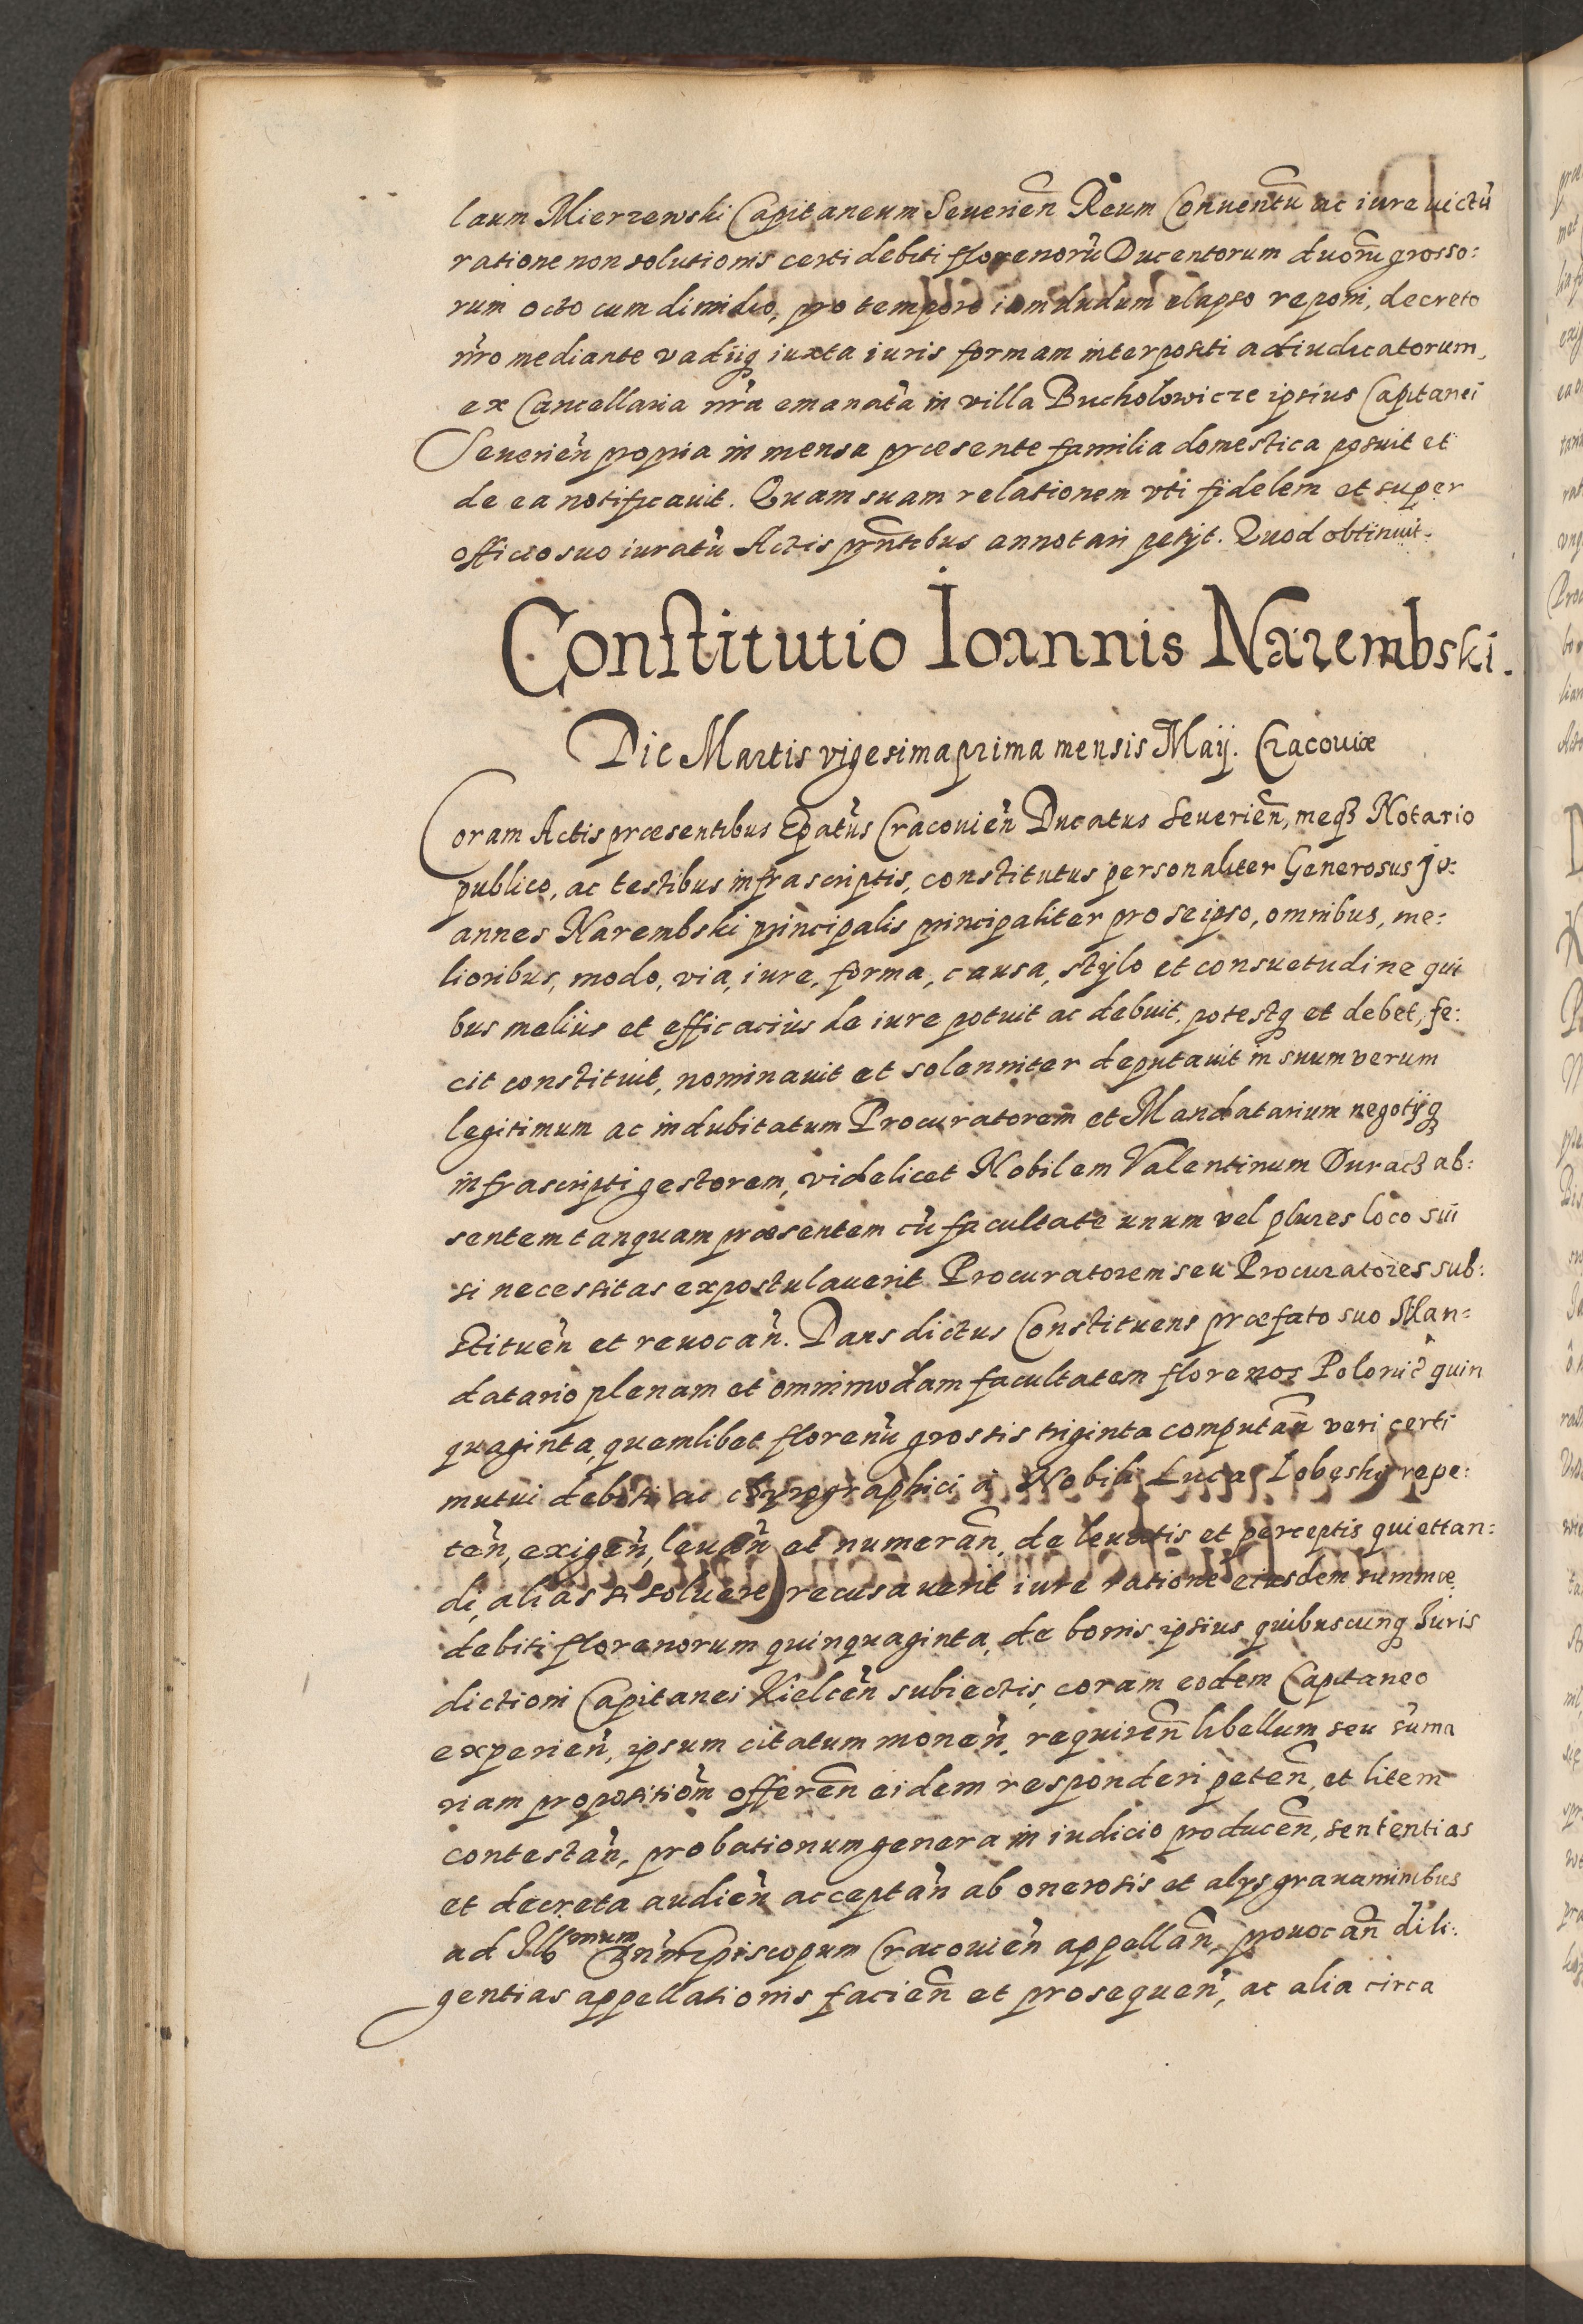 laum Mierzewski Capitaneum Seuerień Reum Conuentū ac iure victū
ratione non solutionis certi debiti florenorū Ducentorum duorū grosso:
rum octo cum dimidio, pro tempore iam dudum elapso reponi, decreto
nr̃o mediante vadijq iuxta iuris formam interpositi adiudicatorum,
ex Cancellaria nr̃a emanata in villa Bucholowicze ipsius Capitanei
Seuerień propria in mensa præsente familia domestica posuit et
de ea notificauit. Quam suam relationem vti fidelem et super
officio suo iuratū Actis pr̃ntibus annotari petijt. Quod obtinuit.
Constitutio Ioannis Narembski.
Die Martis vigesima prima mensis Maij. Cracouiæ
Coram Actis præsentibus Ep̃atus Cracouień Ducatus Seuerień, meqȝ Notario
publico, ac testibus infrascriptis, constitutus personaliter Generosus Jo:
annes Narembski principalis principaliter pro se ipso, omnibus, me:
lioribus, modo, via, iure, forma, causa, stylo et consuetudine qui
bus melius et efficacius de iure potuit ac debuit, potestq et debet, fe:
cit constituit, nominauit et solenniter deputauit in suum verum
legitimum ac indubitatum Procuratorem et Mandatarium negotijq
infrascripti gestorem, videlicet Nobilem Valentinum Duracz ab:
sentem tanquam præsentem cū facultate unum vel plures loco sui
si necessitas expostulauerit Procuratorem seu Procuratores sub:
stitueń et reuocań. Dans dictus Constituens præfato suo Man:
datario plenam et omnimodam facultatem florenos Polonic̃ quin
quaginta, quemlibet florenū grossis triginta computań veri certi
mutui debiti ac chyrographici a Nobili Luca Lobęsky repe:
teń, exigeń, leuań et numerań, de leuatis et perceptis quiettan:
di, alias si soluere recusauerit iure ratione eiusdem summæ
debiti florenorum quinquaginta, de bonis ipsius quibuscunq Juris
dictioni Capitanei Kielceń subiectis, coram eodem Capitaneo
experień, ipsum citatum moneń, requireń libellum seu sūma
riam propositiom̃ offereń eidem responderi peteń, et litem
contestań, probationum genera in iudicio produceń, sententias
et decreta audień acceptań ab onerosis et alijs grauaminibus
ad Illomum Dnm̃ Episcopum Cracouień appellań, prouocań dili:
gentias appellationis facień et prosequeń, ac alia circa